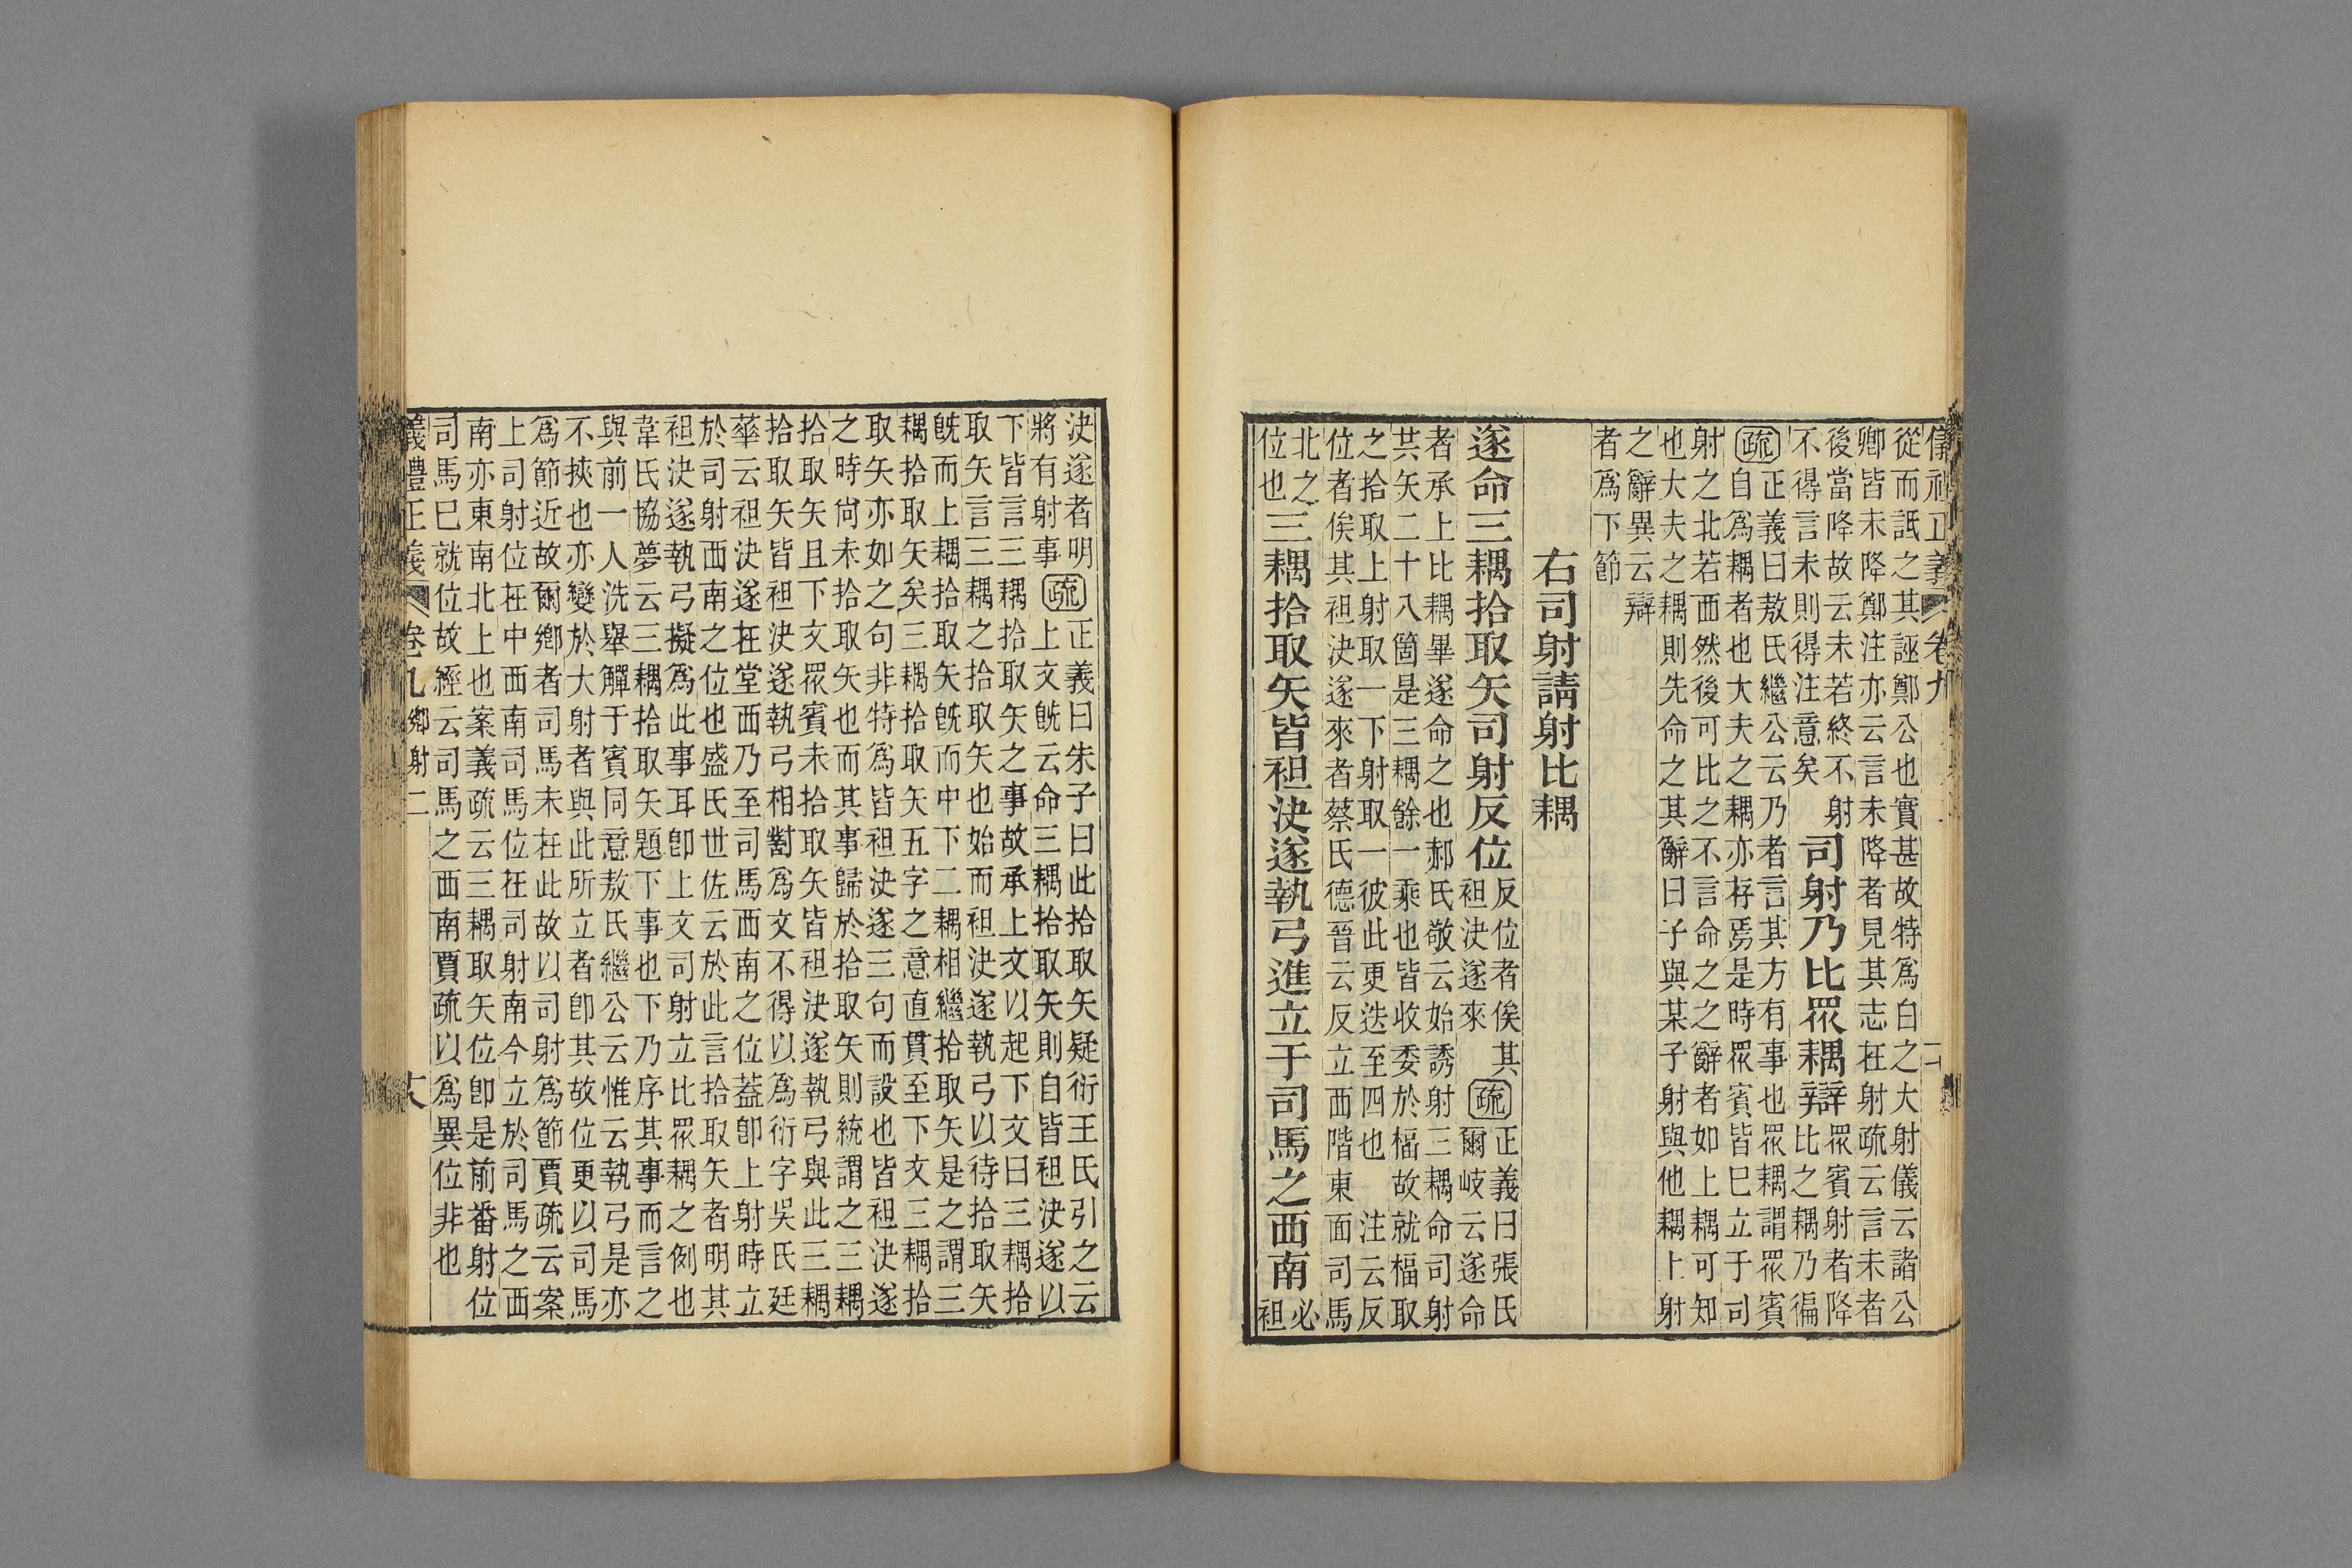 儀禮正義 卷九
從而詆之其誣鄭公也實甚故特爲白之大射儀云諸公
卿皆未降鄭注亦云言未降者見其志在射疏云言未者
後當降故云未若終不射
不得言未則得注意矣
司射乃比眾耦辯
眾賓射者降
比之耦乃徧
疏
正義曰敖氏繼公云乃者言其方有事也眾耦謂眾賓
自爲耦者也大夫之耦亦存焉是時眾賓皆巳立于司
射之北若西然後可比之不言命之之辭者如上耦可知
也大夫之耦則先命之其辭曰子與某子射與他耦上射
之辭異云辯
者爲下節
右司射請射比耦
遂命三耦拾取矢司射反位
反位者俟其
袒決遂來
疏
正義曰張氏
爾岐云遂命
者承上比耦畢遂命之也郝氏敬云始誘射三耦命司射
共矢二十八箇是三耦餘一乘也皆收委於楅故就楅取
之拾取上射取一下射取一彼此更迭至四也 注云反
位者俟其袒決遂來者蔡氏德晉云反立西階東面司馬
北之
位也
三耦拾取矢皆袒決遂執弓進立于司馬之西南
必
袒
決遂者明
將有射事
疏
正義曰朱子曰此拾取矢疑衍王氏引之云
上文旣云命三耦拾取矢則自皆袒決遂以
下皆言三耦拾取矢之事故承上文以起下文曰三耦拾
取矢言三耦之拾取矢也始而袒決遂執弓以待拾取矢
旣而上耦拾取矢旣而中下二耦相繼拾取矢是之謂三
耦拾取矢矣三耦拾取矢五字之意直貫至下文三耦拾
取矢亦如之句非特爲皆袒決遂三句而設也皆袒決遂
之時尙未拾取矢也而其事歸於拾取矢則統謂之三耦
拾取矢且下文眾賓未拾取矢皆袒決遂執弓與此三耦
拾取矢皆袒決遂執弓相對爲文不得以爲衍字吳氏廷
華云袒決遂在堂西乃至司馬西南之位蓋卽上射時立
於司射西南之位也盛氏世佐云於此言拾取矢者明其
袒決遂執弓擬爲此事耳卽上文司射立比眾耦之例也
韋氏協夢云三耦拾取矢題下事也下乃序其事而言之
與前一人洗舉觶于賓同意敖氏繼公云惟云執弓是亦
不挾也亦變於大射者與此所立者卽其故位更以司馬
爲節近故爾鄉者司馬未在此故以司射爲節賈疏云案
上司射位在中西南司馬位在司射南今立於司馬之西
南亦東南北上也案義疏云三耦取矢位卽是前番射位
司馬巳就位故經云司馬之西南賈疏以爲異位非也
義禮正義 卷九鄉射二